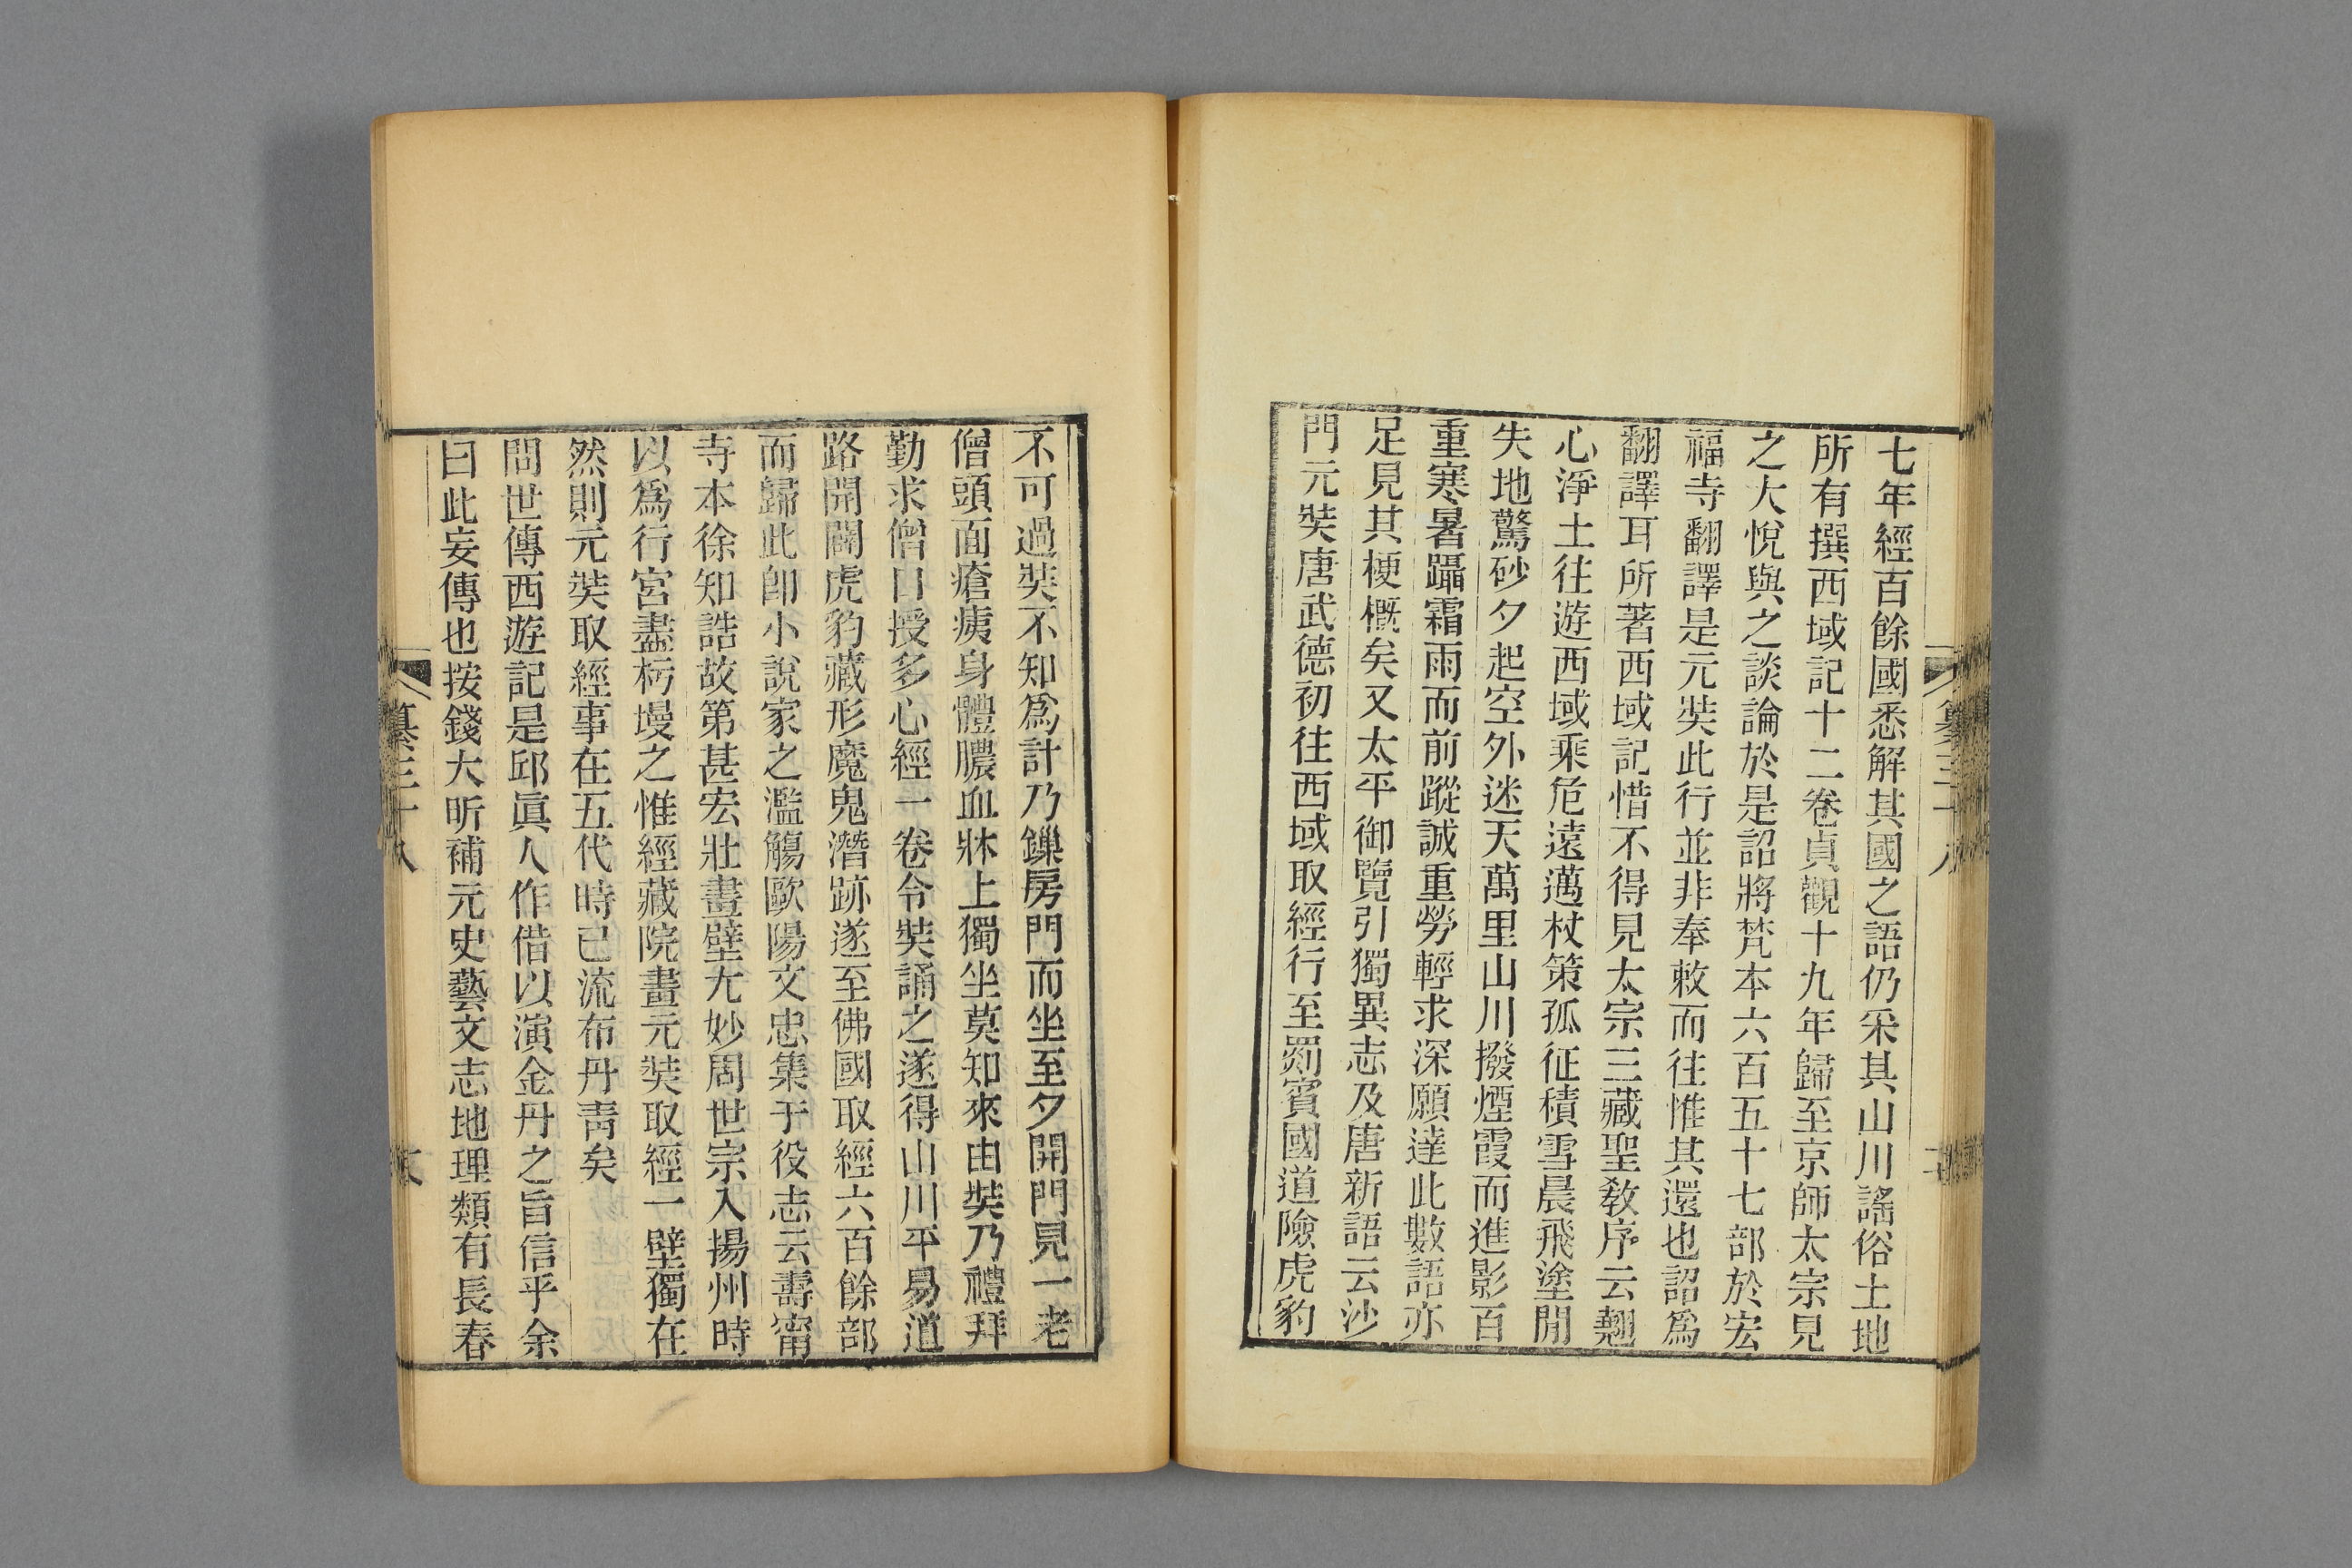 七年經百餘國悉解其國之語仍采其山川謠俗土地
所有撰西域記十二卷貞觀十九年歸至京師太宗見
之大悅與之談論於是詔將梵本六百五十七部於宏
福寺翻譯是元奘此行並非奉敕而往惟其還也詔爲
翻譯耳所著西域記惜不得見太宗三藏聖敎序云翹
心淨土往遊西域乘危遠邁杖策孤征積雪晨飛塗閒
失地驚砂夕起空外迷天萬里山川撥煙霞而進影百
重寒暑躡霜雨而前蹤誠重勞輕求深願達此數語亦
足見其梗槪矣又太平御覽引獨異志及唐新語云沙
門元奘唐武德初往西域取經行至罽賓國道險虎豹
不可過奘不知爲計乃鏁房門而坐至夕開門見一老
僧頭面瘡痍身體膿血牀上獨坐莫知來由奘乃禮拜
勤求僧口授多心經一卷令奘誦之遂得山川平易道
路開闢虎豹藏形魔鬼潛跡遂至佛國取經六百餘部
而歸此卽小說家之濫觴歐陽文忠集于役志云壽甯
寺本徐知誥故第甚宏壯畫壁尤妙周世宗入揚州時
以爲行宮盡杇墁之惟經藏院畫元奘取經一壁獨在
然則元奘取經事在五代時已流布丹靑矣
問世傳西游記是邱眞人作借以演金丹之旨信乎余
曰此妄傳也按錢大昕補元史藝文志地理類有長春
纂三十八